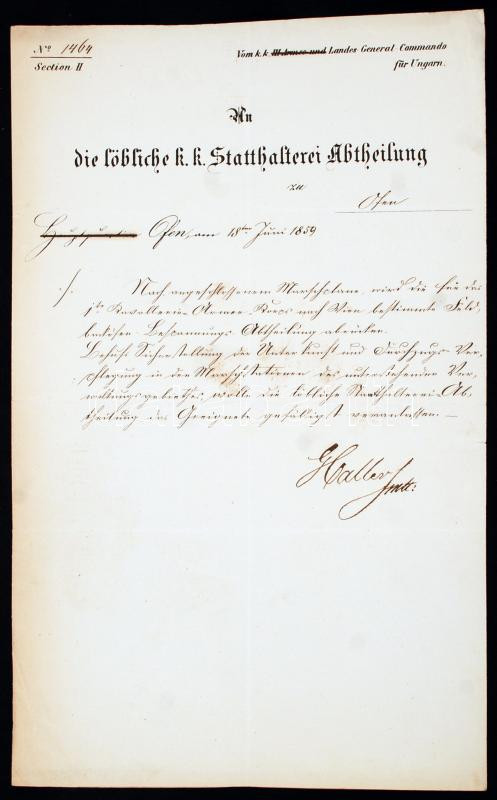 No 1464
Section II
Vom k.k. III Armee und Landes General Commando
für Ungarn.
An
die löbliche k. k. Statthalterei Abtheilung
zu
Ofen
Ofen, am 18ten Juni 1859
./. Nach angeschlossenem Marschplane, wird die für das
1te Kavallerie Armee Korps nach Wien bestimmte Feld
bäckerei Bespannungs Abtheilung abrücken.
Behufs Sicherstellung der Unterkunft und Durchzugs Ver
pflegung in den Marschstationen des unterstehenden Ver
waltungsgebiethes, wolle die löbliche Statthalterei Ab
theilung das Geeignete gefälligst veranlassen. —
Haller